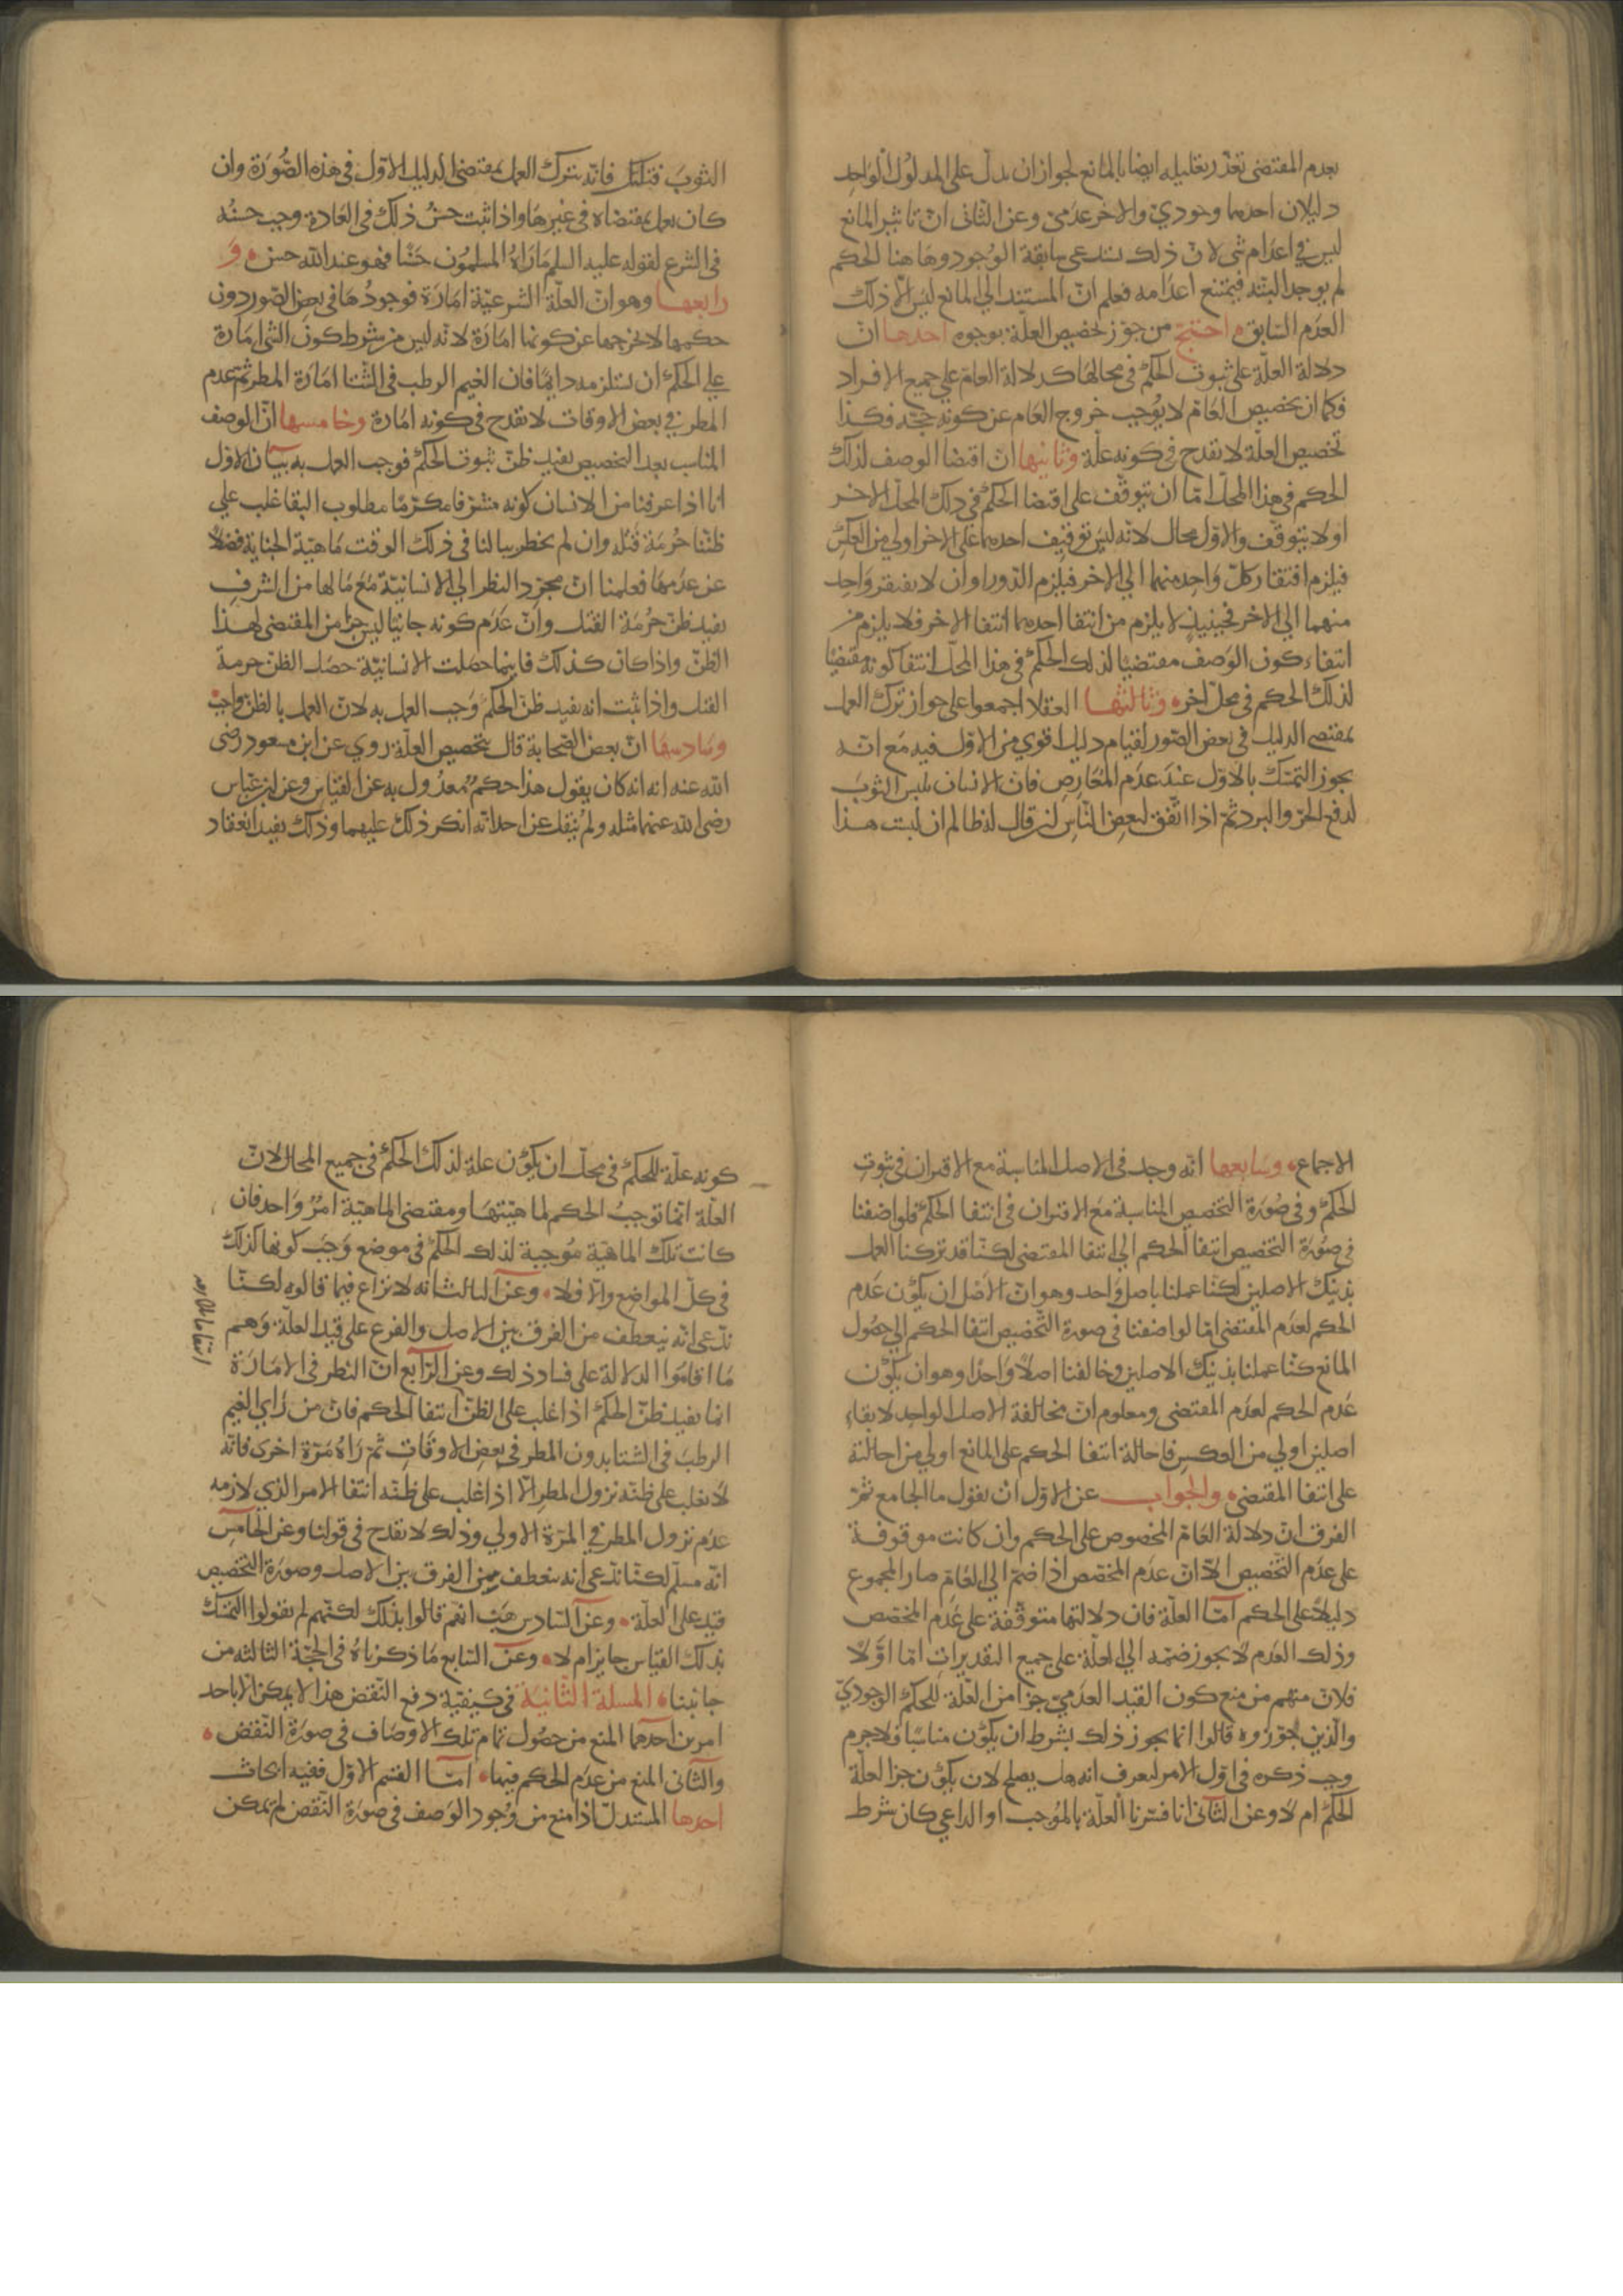 بعدم المقتضى تعذر تعليله ايضا بالمانع لجواز ان يدل على المدلول الواحد
دليلان احدهما وجودي والاخر عدمي وعن الثاني ان تاثير المانع
ليس في اعدام شي لان ذلك يستدعي سابقة الوجود وهاهنا الحكم
لم يوجد البتة فيمتنع اعدامه فعلم ان المستند الي المانع ليس الا ذلك
العدم السابق احتج من جوز تخصيص العلة بوجوه احدها ان
دلالة العلة على ثبوت الحكم في محالها كدلالة العام علي جميع الافراد
فكما ان تخصيص العام لا يوجب خروج العام عن كونه حجة فكذا
تخصيص العلة لا يقدح في كونه علة وثانيها ان اقتضا الوصف لذلك
الحكم في هذا المحل اما ان يتوقف على اقتضا الحكم في ذلك المحل الاخر
او لا يتوقف والاول محال لانه ليس توقيف احدهما على الاخر اولي من العكس
فيلزم افتقار كل واحد منهما الي الاخر فيلزم الدور وان لا يفتقر واحد
منهما الي الاخر فحينيذ لا يلزم من انتفا احدهما انتفا الاخر فلا يلزم من
انتفاء كون الوصف مقتضيا لذلك الحكم في هذا المحل انتفا كونه مقتضيا
لذلك الحكم في محل اخر وثالثها العقلا اجمعوا على جواز ترك العمل
بمقتضى الدليل في بعض الصور لقيام دليل اقوي من الاول فيه مع انه
يجوز التمسك بالاول عند عدم المعارض فان الانسان يلبس الثوب
لدفع الحر والبرد ثم اذا اتفق لبعض الناس ان قال له ظالم ان لبست هذا
الثوب قتلتك فانه يترك العمل بمقتضى الدليل الاول في هذه الصورة وان
كان يعمل بمقتضاه في غيرها واذا ثبت حسن ذلك في العادة وجب حسنه
في الشرع لقوله عليه السلم ما راه المسلمون حسنا فهو عند الله حسن و
رابعها وهو ان العلة الشرعية امارة فوجودها في بعض الصور دون
حكمها لا يخرجها عن كونها امارة لانه ليس من شرط كون الشي امارة
علي الحكم ان يستلزمه دايما فان الغيم الرطب في الشتا امارة المطر ثم عدم
المطر في بعض الاوقات لا يقدح في كونه امارة وخامسها ان الوصف
المناسب بعد التخصيص يفيد ظن ثبوت الحكم فوجب العمل به بيان الاول
انا اذا عرفنا من الانسان كونه مشرفا مكرما مطلوب البقا غلب علي
ظننا حرمة قتله وان لم يخطر ببالنا في ذلك الوقت ماهية الجناية فضلا
عن عدمها فعلمنا ان مجرد النظر الي الانسانية مع ما لها من الشرف
يفيد ظن حرمة القتل وان عدم كونه جانيا ليس جزا من المقتضى لهذا
الظن واذا كان كذلك فاينما حصلت الانسانية حصل الظن حرمة
القتل واذا ثبت انه يفيد ظن الحكم وجب العمل به لان العمل بالظن واجب
وسادسها ان بعض الصحابة قال بتخصيص العلة روي عن ابن مسعود رضى
الله عنه انه انه كان يقول هذا حكم معدول به عن القياس وعن ابن عباس
رضى الله عنهما مثله ولم ينقل عن احد انه انكر ذلك عليهما وذلك يفيد انعقاد
الاجماع وسابعها انه وجد في الاصل المناسبة مع الاقتران في ثبوت
الحكم وفي صورة التخصيص المناسبة مع الاقتران في انتفا الحكم فلو اضفنا
في صورة التخصيص انتفا الحكم الي انتفا المقتضى لكنا قد تركنا العمل
بذينك الاصلين لكنا عملنا باصل واحد وهو ان الاصل ان يكون عدم
الحكم لعدم المقتضى اما لو اضفنا في صورة التخصيص انتفا الحكم الي حصول
المانع كنا عملنا بذينك الاصلين وخالفنا اصلا واحدا وهو ان يكون
عدم الحكم لعدم المقتضى ومعلوم ان مخالفة الاصل الواحد لابقاء
اصلين اولي من العكس فاحالة انتفا الحكم على المانع اولي من احالته
على انتفا المقتضى والجواب عن الاول ان نقول ما الجامع ثم
الفرق ان دلالة العام المخصوص على الحكم وان كانت موقوفة
على عدم التخصيص الا ان عدم المخصص اذا ضم الي العام صار المجموع
دليلا على الحكم اما العلة فان دلالتها متوقفة على عدم المخصص
وذلك العدم لا يجوز ضمه الي العلة على جميع التقديرات اما اولا
فلان منهم من منع كون القيد العدمي جزا من العلة للحكم الوجودي
والذين جوزوه قالوا انما يجوز ذلك بشرط ان يكون مناسبا ولا جرم
وجب ذكره في اول الامر ليعرف انه هل يصلح لان يكون جزا لعلة
الحكم ام لا وعن الثاني انا فسرنا العلة بالموجب او الداعي كان شرط
كونه علة للحكم في محل ان يكون علة لذلك الحكم في جميع المحال لان
العلة انما توجب الحكم لماهيتها ومقتضى الماهية امر واحد فان
كانت تلك الماهية موجبة لذلك الحكم في موضع وجب كونها كذلك
في كل المواضع والا فلا وعن الثالث انه لا نزاع فيما قالوه لكنا
ندعي انه ينعطف من الفرق بين الاصل والفرع على قيد العلة وهم
ما اقاموا الدلالة على فساد ذلك وعن الرابع ان النظر في الامارة
انما يفيد ظن الحكم اذا غلب على الظن انتفا الحكم فان من راي الغيم
الرطب في الشتا بدون المطر في بعض الاوقات ثم راه مرة اخرى فانه
لا يغلب على ظنه نزول المطر الا اذا غلب على ظنه انتفا الامر الذي لازمه
عدم نزول المطر في المرة الاولي وذلك لا يقدح في قولنا وعن الخامس
انه مسلم لكنا ندعي انه ينعطف من الفرق بين الاصل وصورة التخصيص
قيد على العلة وعن السادس هب انهم قالوا بذلك لكنهم لم يقولوا التمسك
بذلك القياس جايز ام لا وعن السابع ما ذكرناه في الحجة الثالثة من
جانبنا المسلة الثانية في كيفية دفع النقض هذا لا يمكن الا باحد
امرين احدهما المنع من حصول تمام تلك الاوصاف في صورة النقض
والثاني المنع من عدم الحكم فيها اما القسم الاول ففيه ابحاث
احدها المستدل اذا منع من وجود الوصف في صورة النقض لم يمكن